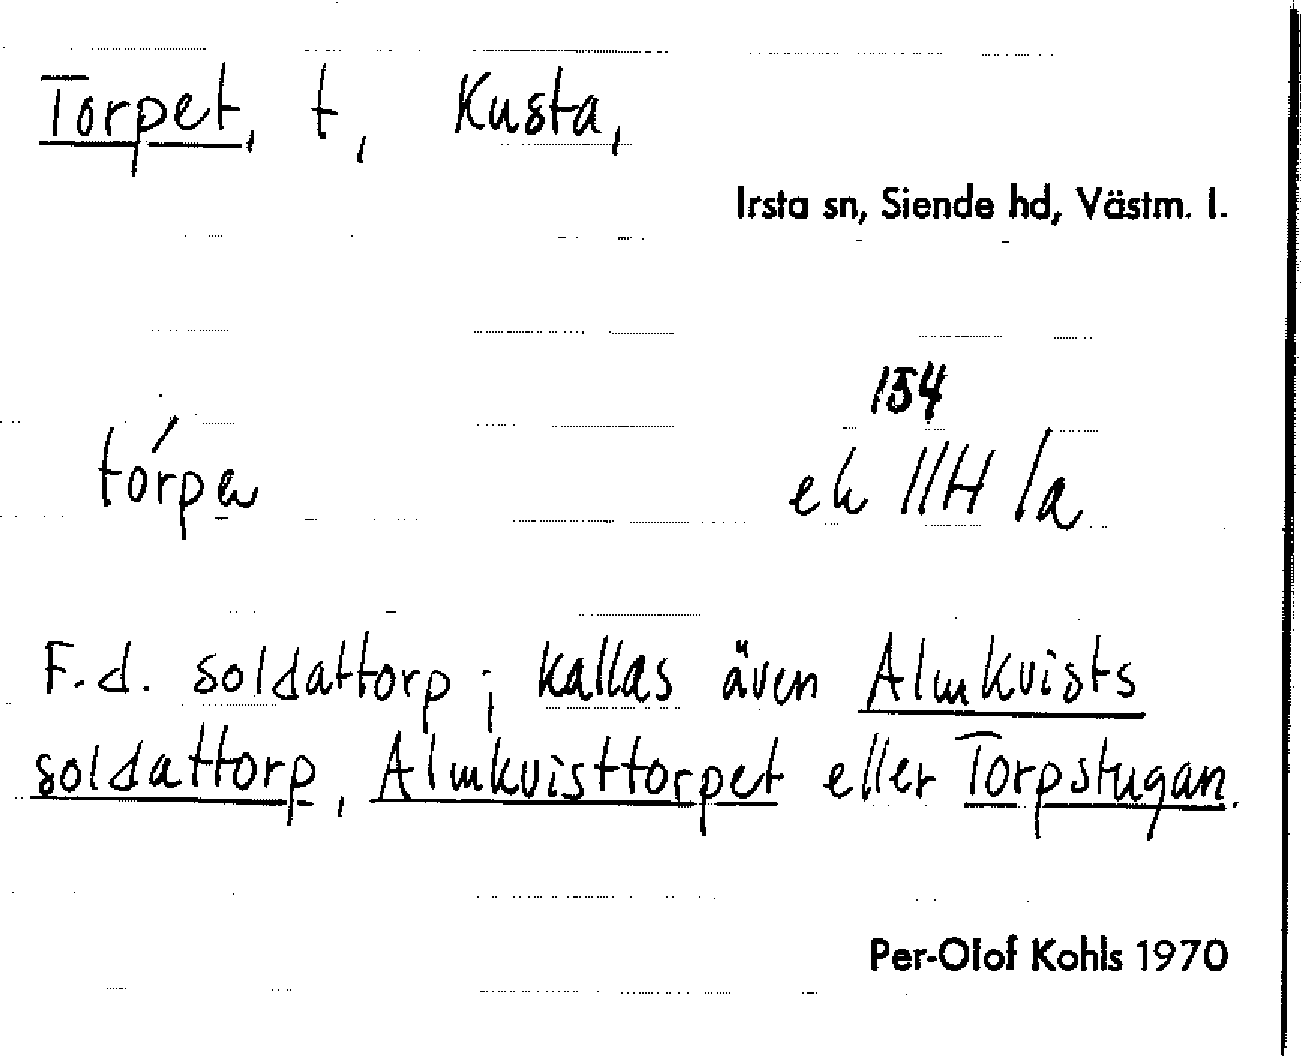 Torpet, t, Kusta,
Irsta sn, Siende hd, Västm. l.
154
tórpe
ek 11H 1a
F.d. soldattorp; kallas även Almkvists
soldattorp, Almkvisttorpet eller Torpstugan.
Per-Olof Kohls 1970